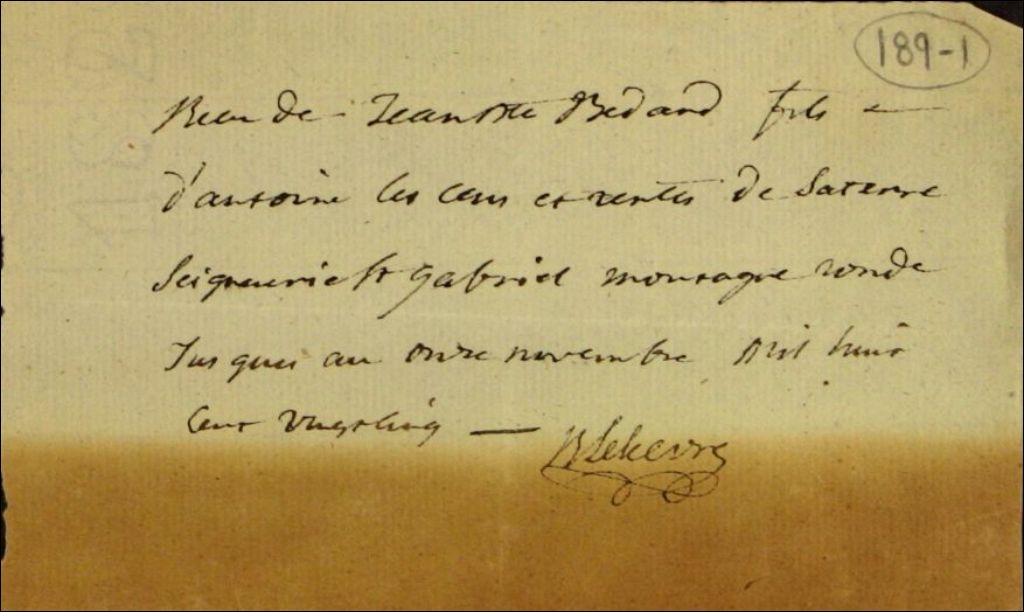 189-1
Recu de Jean Bte Bédard fils
d'antoine les cens et rentes de Saterre
Seigneurie St Gabriel montagne ronde
Jusques au onze novembre Mil huit
Cent Vingt Cinq —